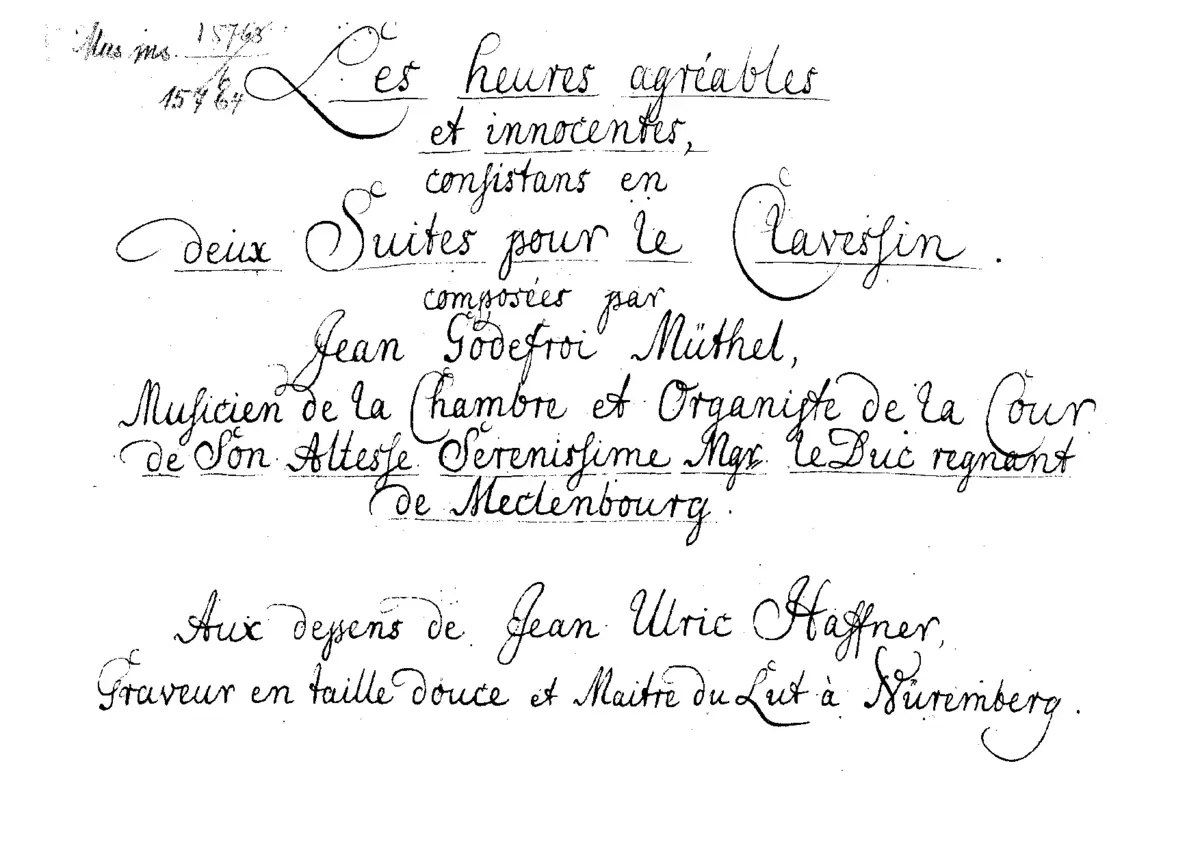 Mus. ms. 15763
15764
Les heures agréables
et innocentes,
consistans en
deux Suites pour le Clavessin.
composées par
Jean Godefroi Müthel,
Musicien de la Chambre et Organiste de la Cour
de Son Altesse Serenissime Mgr. le Duc regnant
de Meclenbourg.
Aux depens de Jean Ulric Haffner,
Graveur en taille douce et Maitre du Lut à Nüremberg.